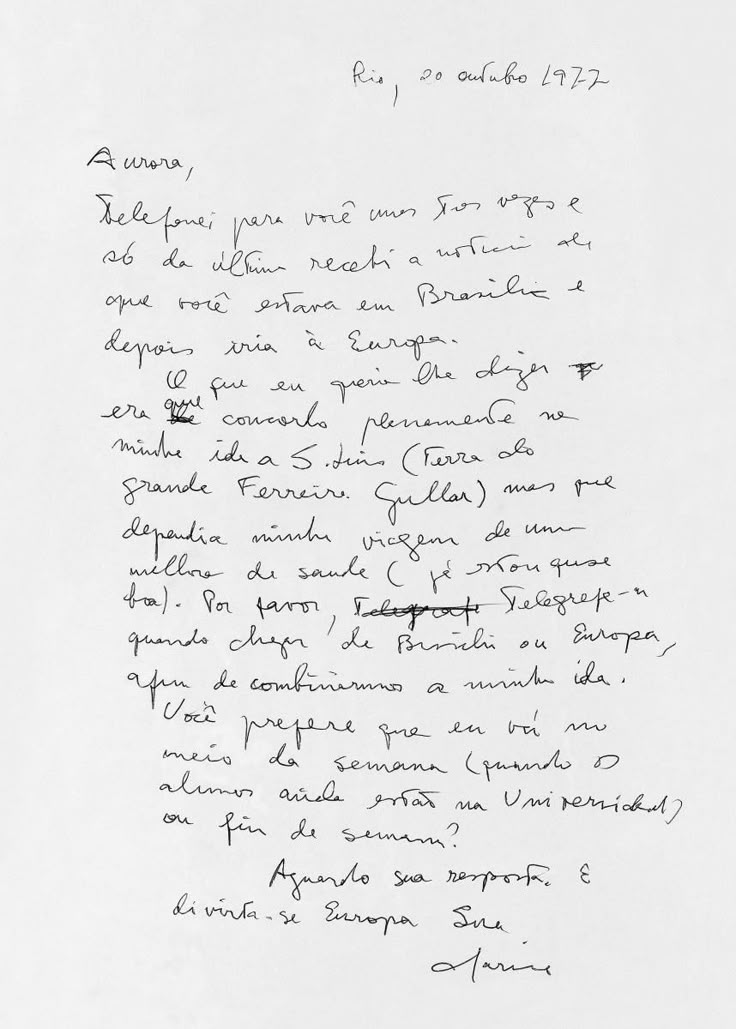 Rio, 20 outubro 1977
Aurora,
Telefonei para você umas três vezes e
só da última recebi a notícia de
que você estava em Brasília e
depois iria à Europa.
O que eu queria lhe dizer
era que concordo plenamente na
minha ida a S. Luis (Terra do
grande Ferreira Gullar) mas que
dependia minha viagem de uma
melhora de saude (já estou quase
boa). Por favor, Telegrafe-
quando chegar de Brasília ou Europa,
afim de combinarmos a minha ida.
Você prefere que eu vá no
meio da semana (quando os
alunos ainda estão na Universidade)
ou fin de semana?
Aguardo sua resposta. E
divirta-se Europa Sua